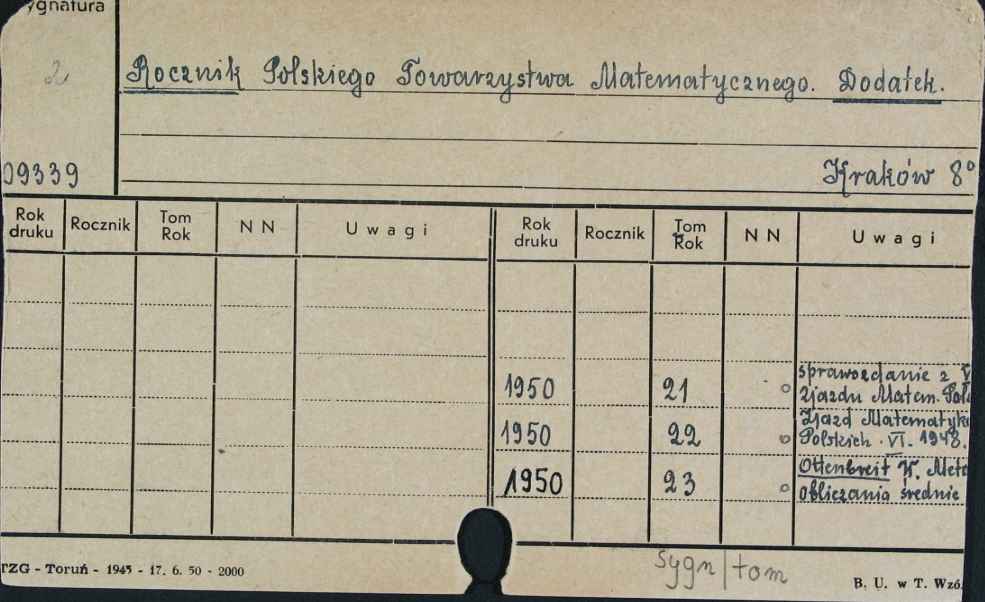 ygnatura
2
Rocznik Polskiego Towarzystwa Matematycznego. Dodatek.
09339
Kraków 8°
Rok druku Rocznik Tom Rok N N Uwagi Rok druku Rocznik Tom Rok N N Uwagi
1950 21 o sprawozdanie z V
zjazdu Matem. Pol
1950 22 o Zjazd Matematyk
Polskich. VI. 1948.
1950 23 o Ottenbreit W. Meto
obliczania średnie
sygn/tom
TZG - Toruń - 1945 - 17. 6. 50 - 2000
B. U. w T. Wzó